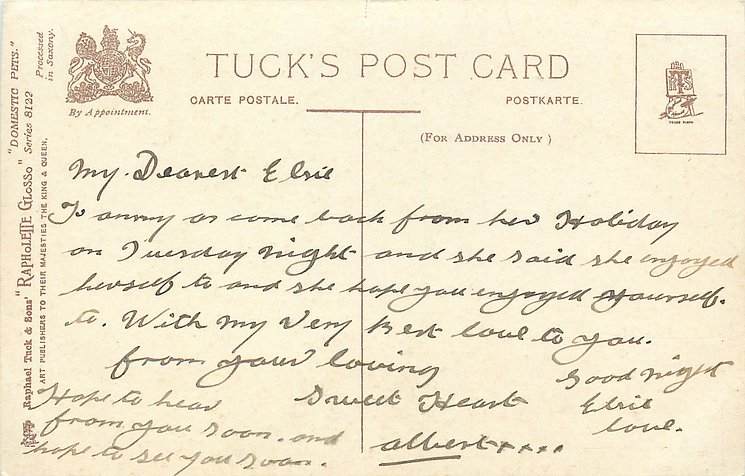 TUCK'S POST CARD
CARTE POSTALE.
POSTKARTE.
(FOR ADDRESS ONLY)
By Appointment.
TRADE MARK
"DOMESTIC PETS."
Processed
in Saxony.
Raphael Tuck & Sons' "RAPHOLETTE GLOSSO" Series 8122
ART PUBLISHERS TO THEIR MAJESTIES THE KING & QUEEN.
My Dearest Elsie
as come back from her Holiday
on Tuesday night and she said she enjoyed
herself to and she hope you enjoyed yourself.
to. With my Very best love to you.
from your loving
Sweet Heart
albert xxxx
Good night
Elsie
love.
Hope to hear
from you soon. and
hope to see you soon.